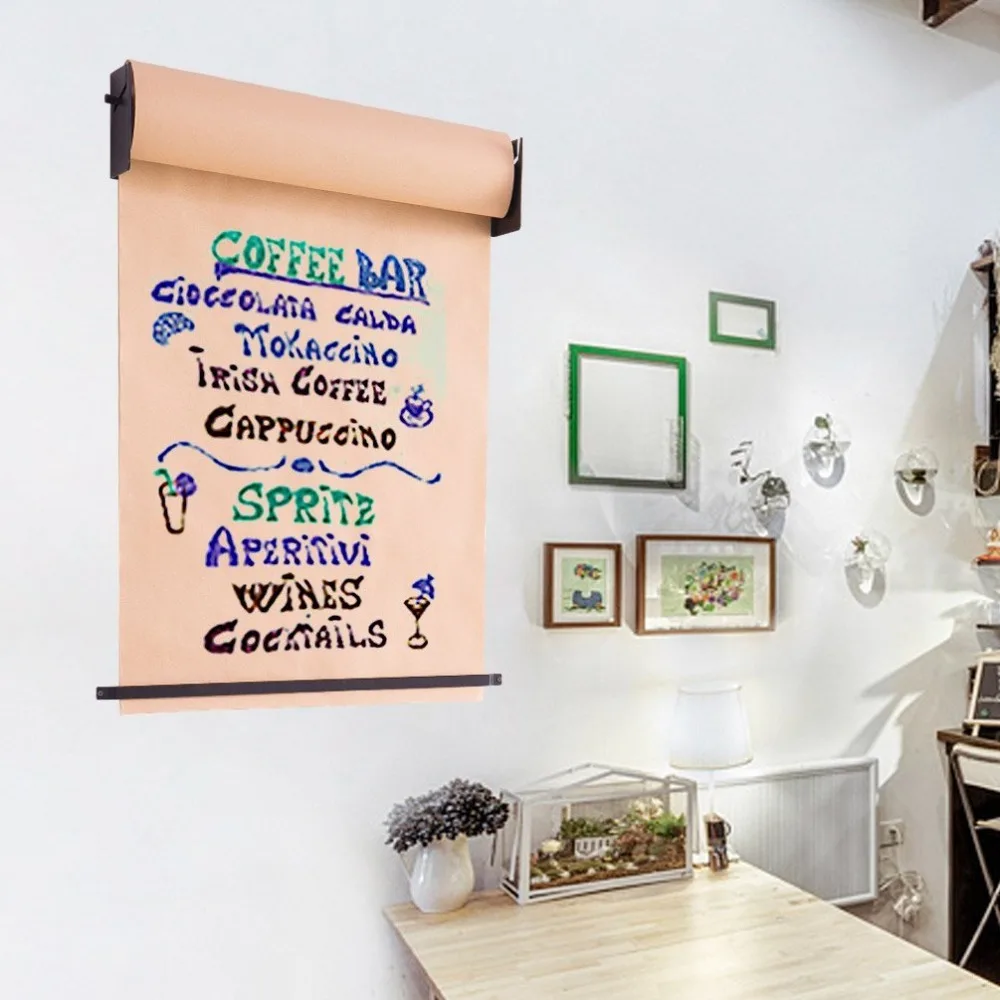 COFFEE BAR
CIOCCOLATA CALDA
MOKACCINO
IRISH COFFEE
CAPPUCCINO
SPRITZ
APERITIVI
WINES
COCKTAILS